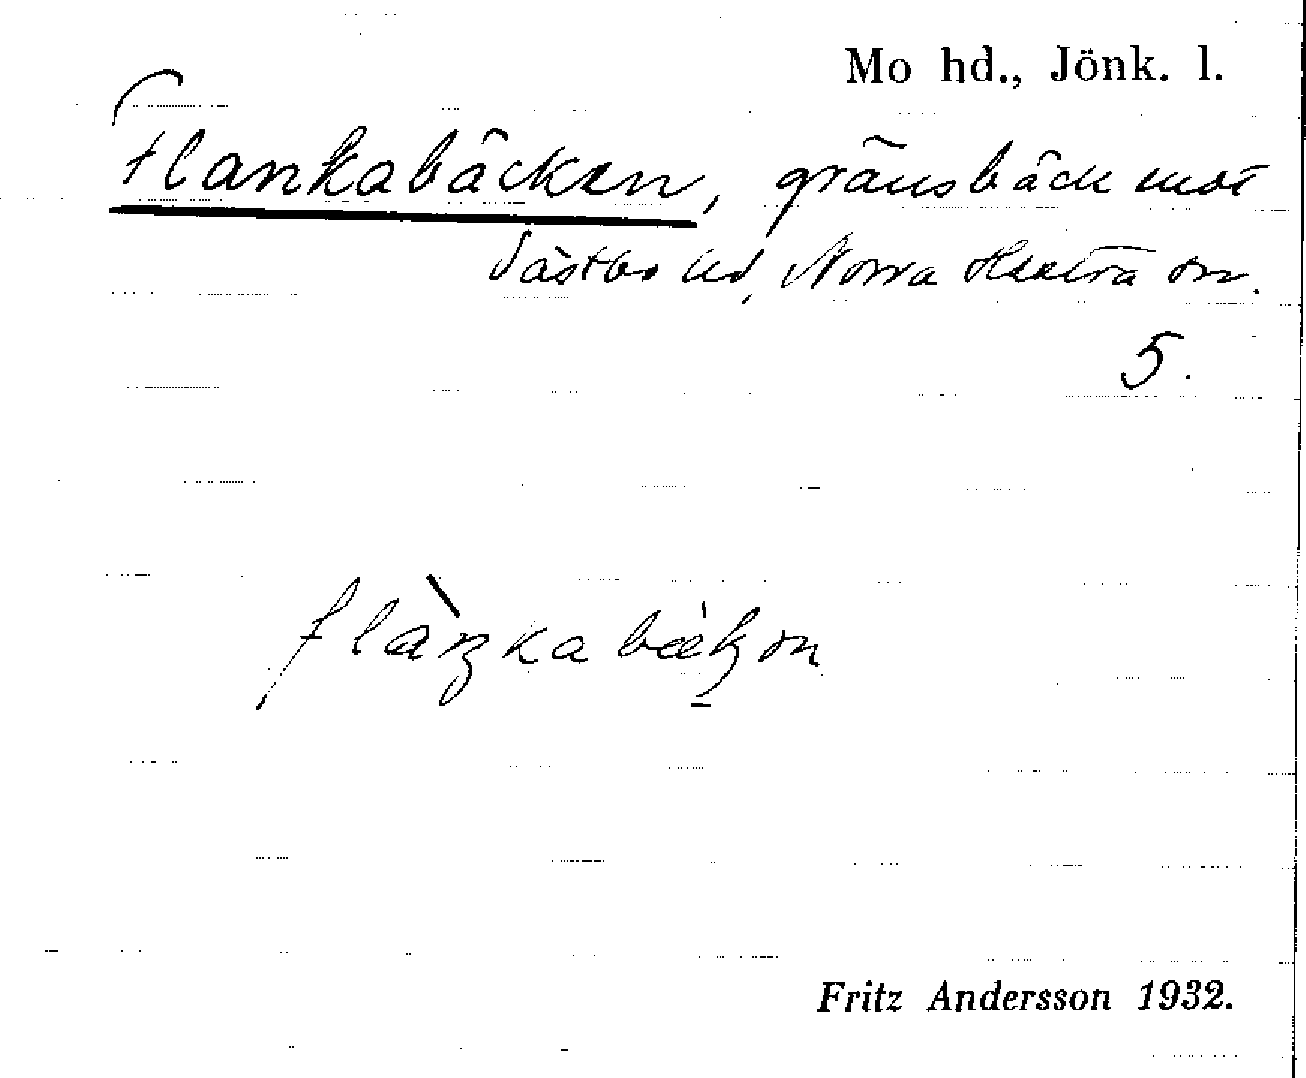 Mo hd., Jönk. l.
Flankabäcken, gränsbäck mot
Västbo hd, Norra Hestra sn.
5.
flàŋkabæ̀kən
Fritz Andersson 1932.